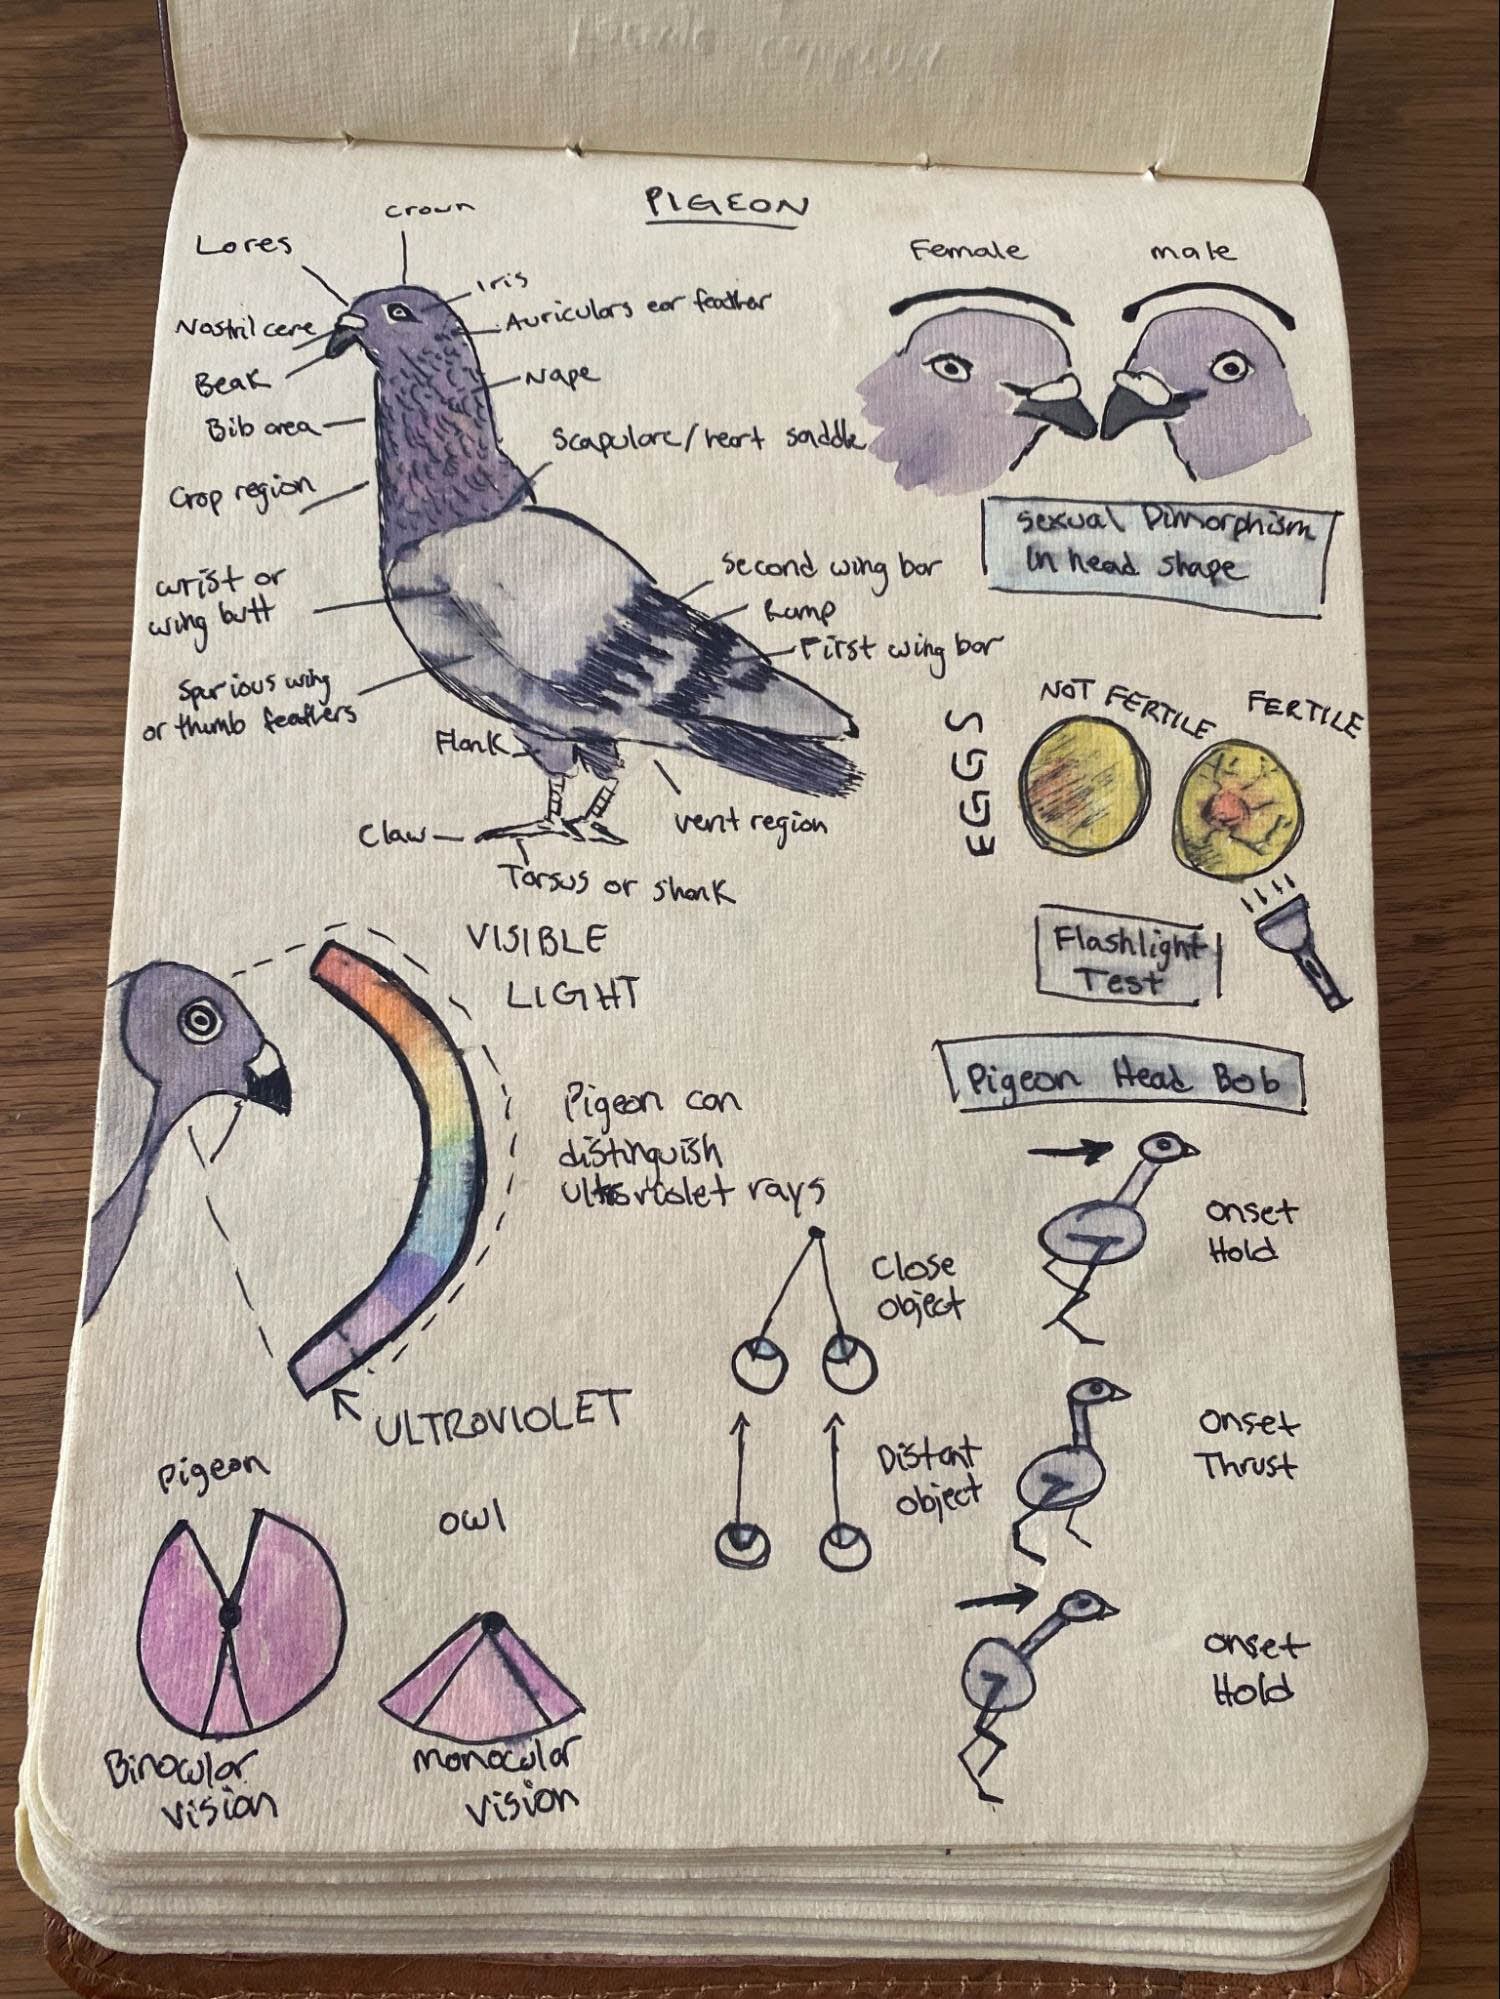 PIGEON
Crown
Lores
Iris
Auriculars ear feather
Nostril cere
Beak
Nape
Bib area
Scapularc/heart saddle
Crop region
Second wing bar
wrist or
wing butt
Rump
First wing bar
Spurious wing
or thumb feathers
Flank
Claw
vent region
Tarsus or shank
Female
male
Sexual Dimorphism
In head shape
EGGS
NOT FERTILE
FERTILE
Flashlight
Test
VISIBLE
LIGHT
Pigeon can
distinguish
ultraviolet rays
ULTRAVIOLET
Pigeon Head Bob
Onset
Hold
Close
object
Onset
Thrust
Distant
object
Onset
Hold
Pigeon
owl
Binocular
vision
monocular
vision